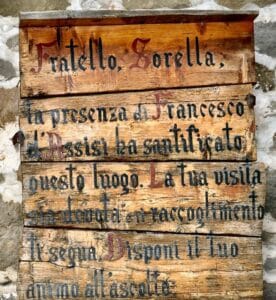 Fratello, Sorella,
la presenza di Francesco
d'Assisi ha santificato
questo luogo. La tua visita
sia devota e il raccoglimento
ti segua. Disponi il tuo
animo all'ascolto: